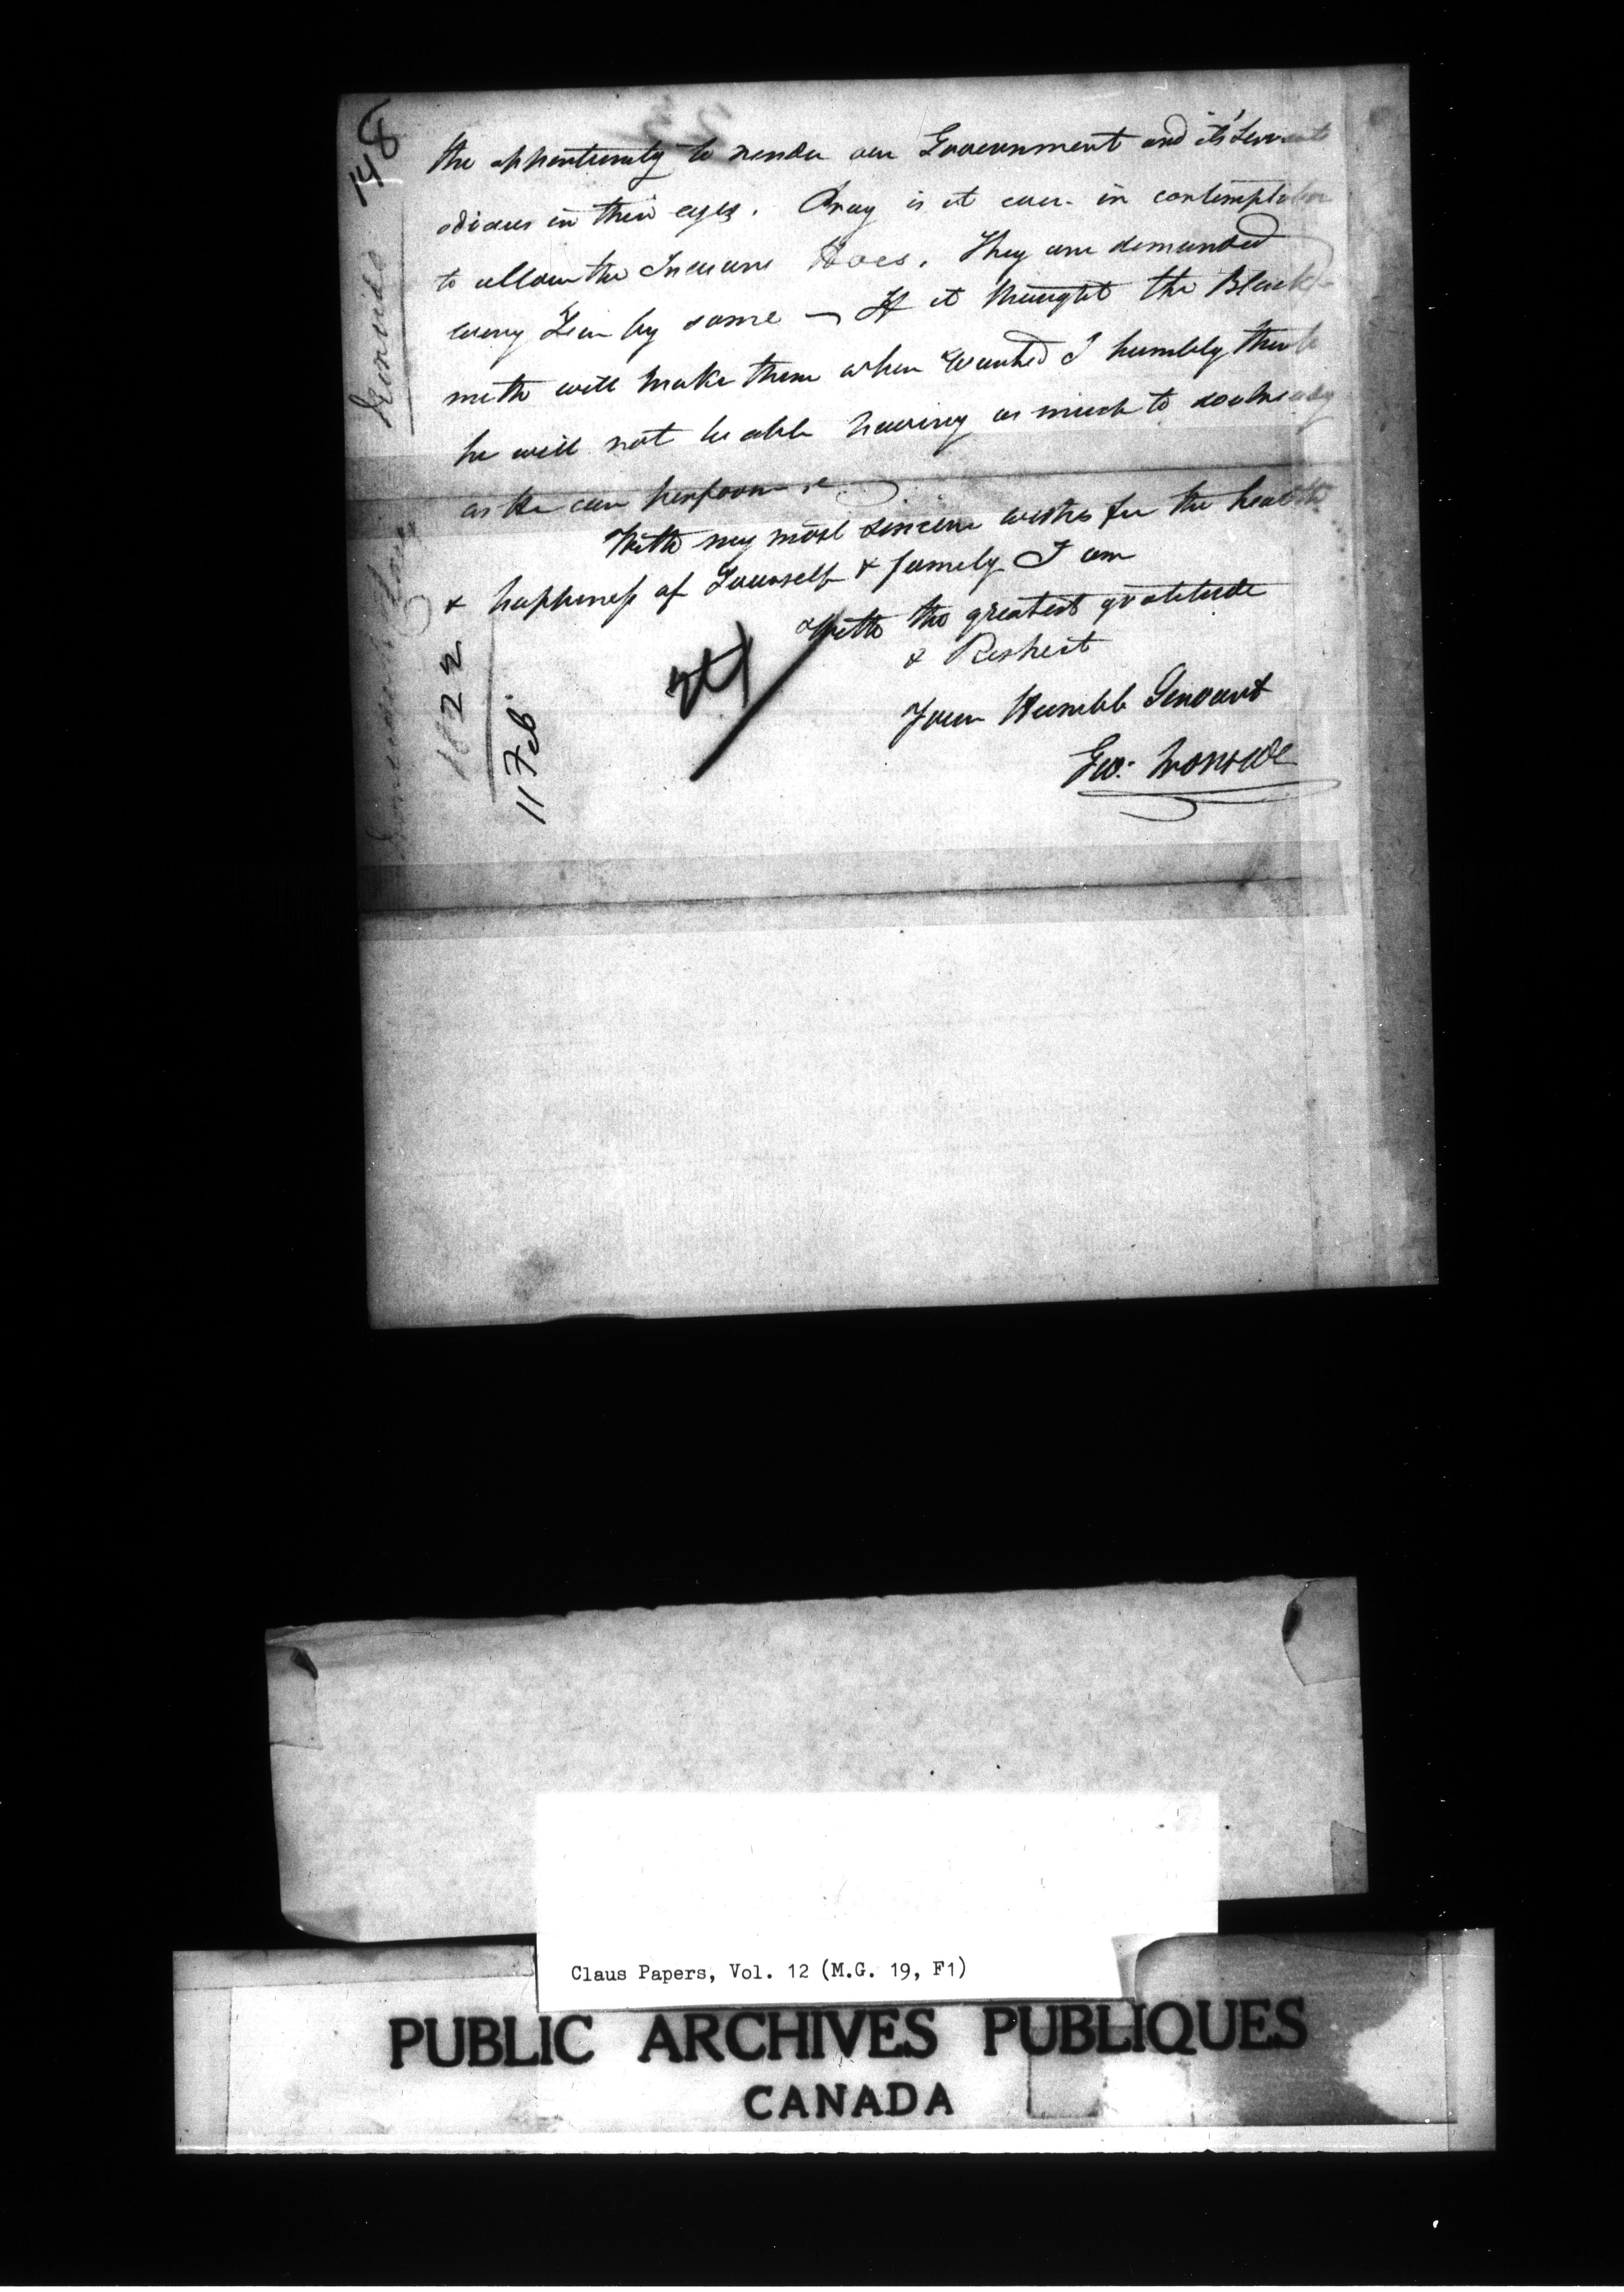 148
the opportunity to render our Government and its' Servants
odious in their eyes. Pray is it ever in contemplation
to allow the Indians Hoes. They are demanded
every Year by some — If it thought the Black
smith will make them when wanted I humbly think
he will not be able having as much to do already
as he can perform
With my most sincere wishes for the health
& happiness of Yourself & family I am
With the greatest gratitude
& Respect
Your Humble Servant
Geo: Ironside
Ironside
1822
11 Feb.
Claus Papers, Vol. 12 (M.G. 19, F1)
PUBLIC ARCHIVES PUBLIQUES
CANADA